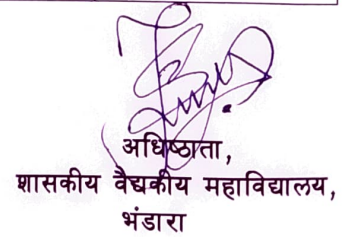 अधिष्ठाता,
शासकीय वैद्यकीय महाविद्यालय,
भंडारा